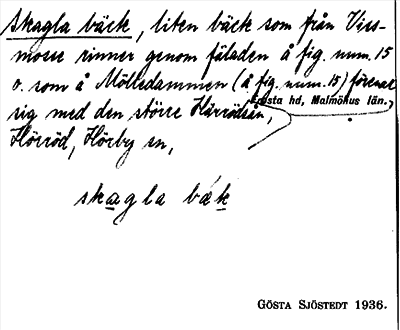 Skagla bäck, liten bäck som från Viss-
mosse rinner genom fäladen å fig. num. 15
o. som å Mölledammen (å fig. num. 15) förenar
sig med den större Hårrödsån,
Frosta hd, Malmöhus län.
Hörröd, Hörby sn,
skagla bæk
GÖSTA SJÖSTEDT 1936.